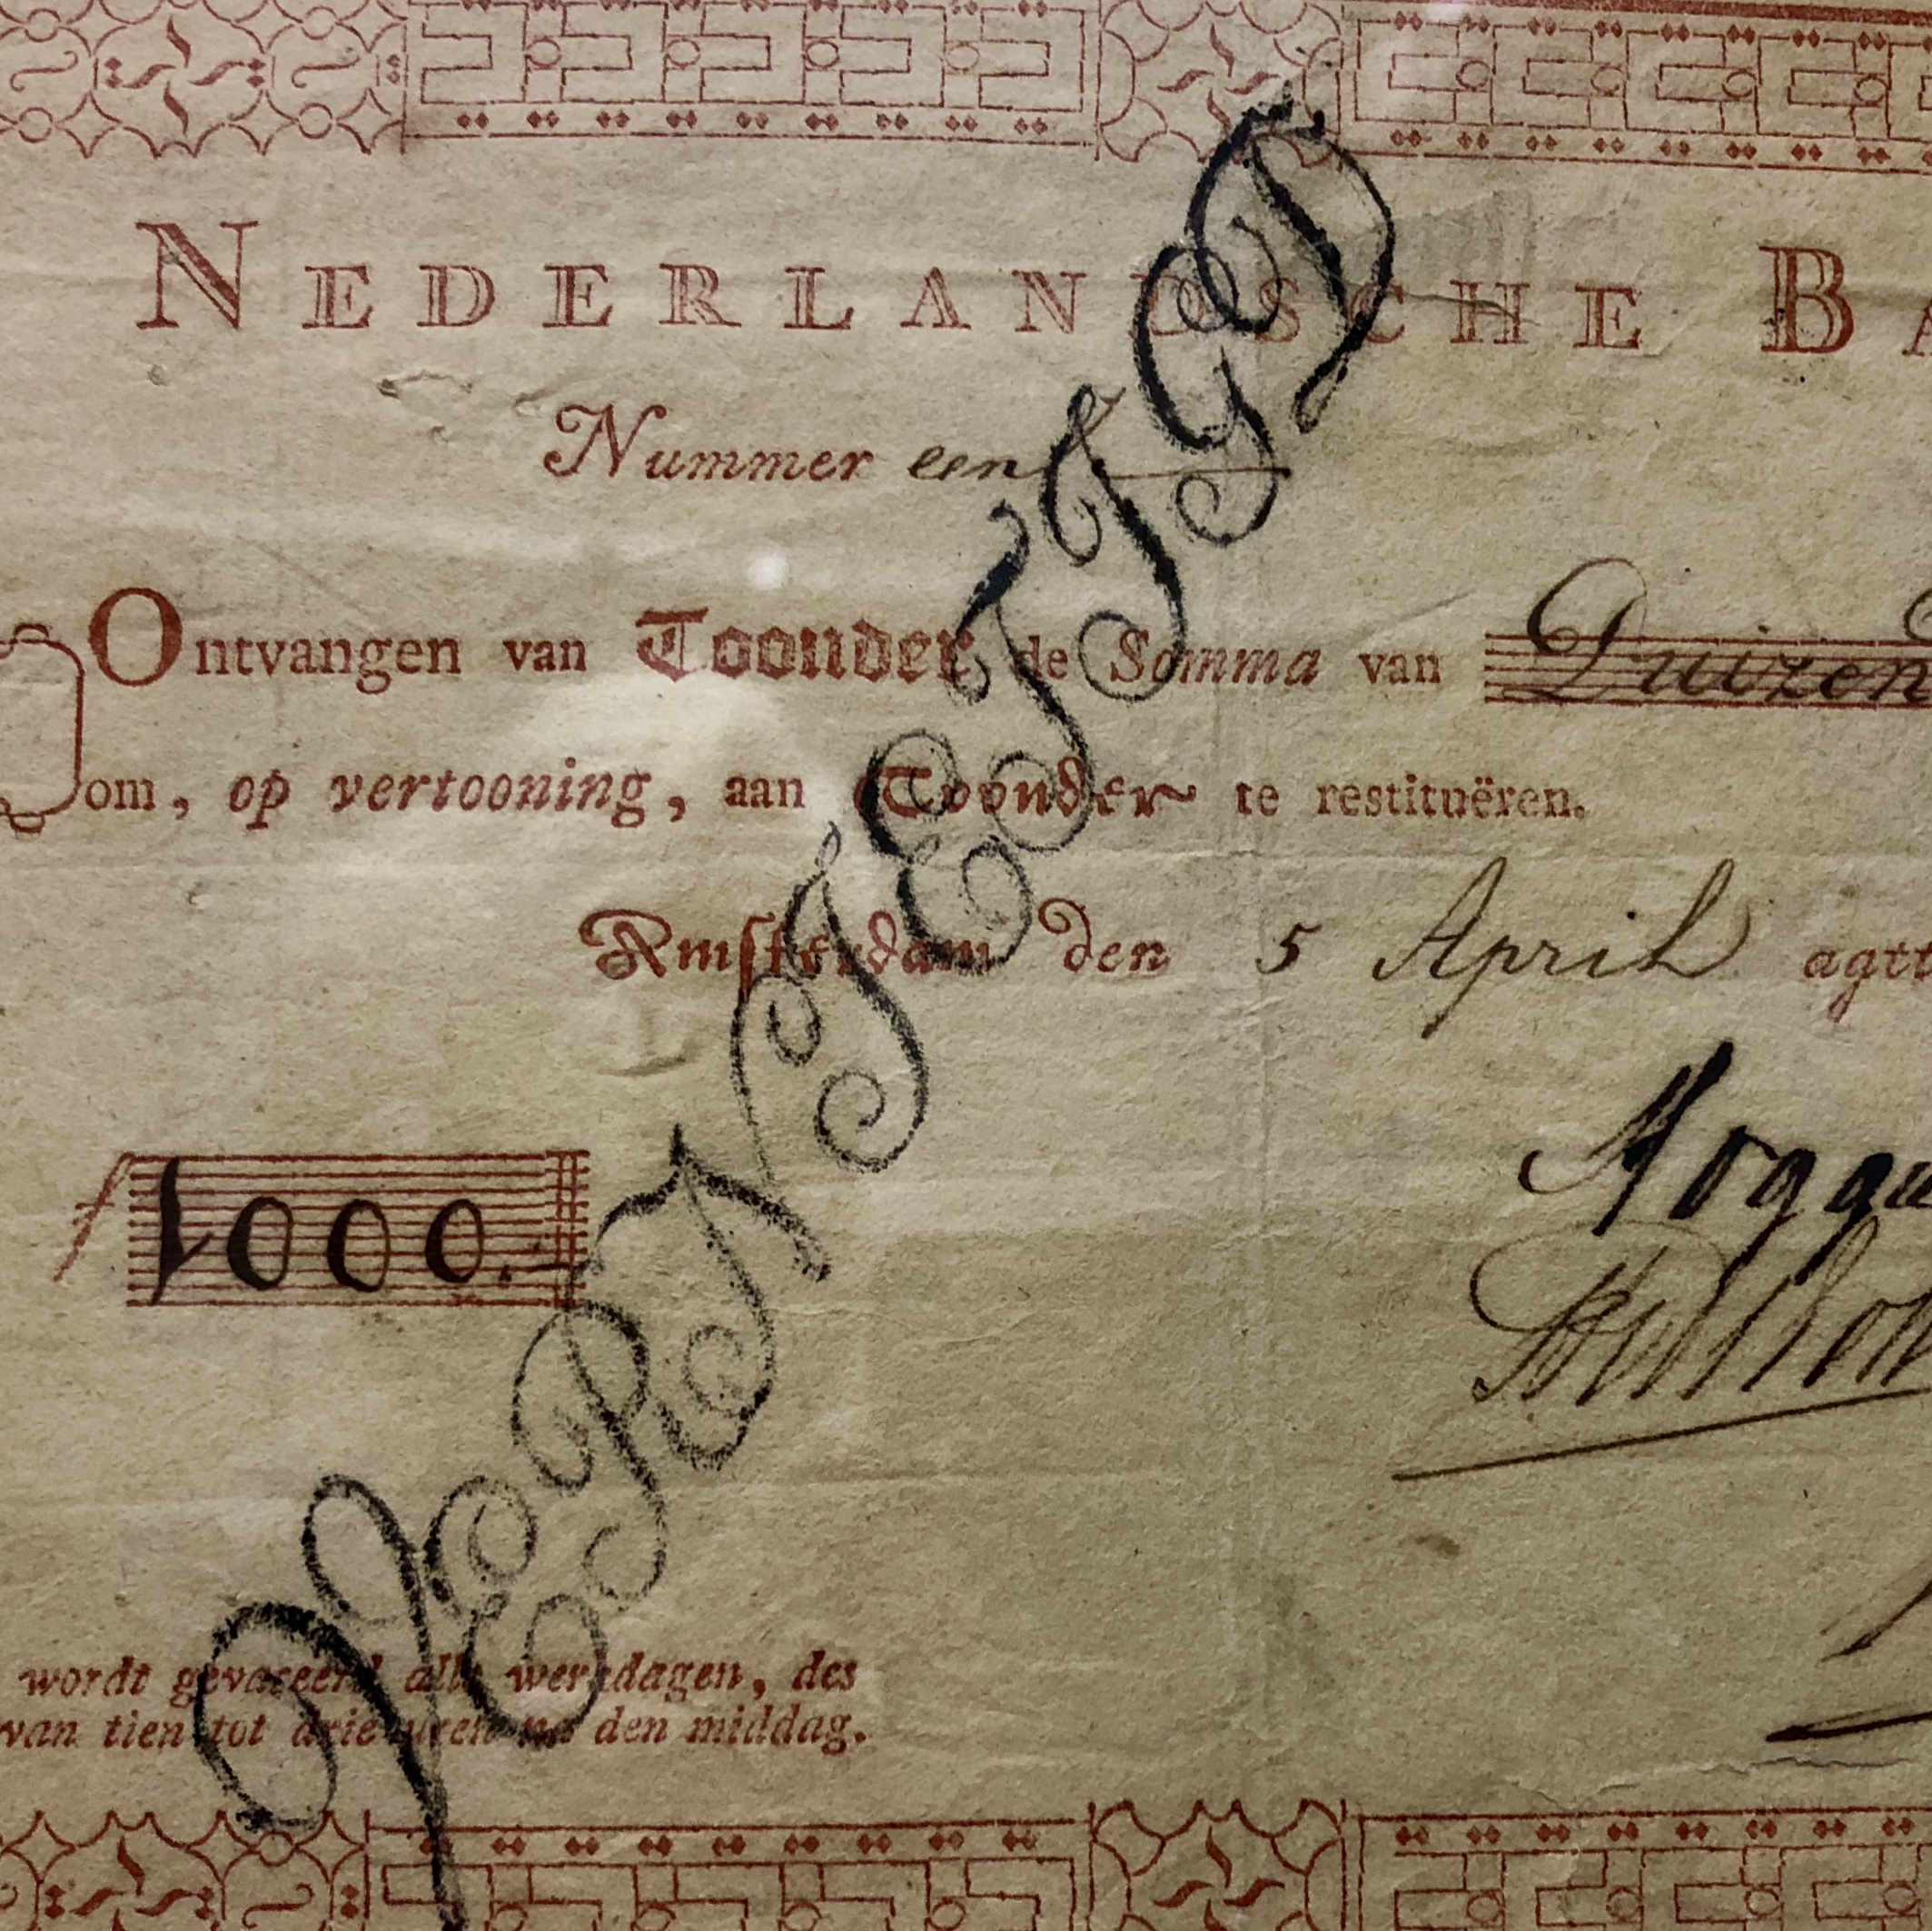 NEDERLANDSCHE BA
Nummer een
Ontvangen van Toonder de Somma van Duizend
om, op vertooning, aan Toonder te restituëren.
Amsterdam den 5 April agtt
ƒ 1000.
wordt gevaceerd alle werkdagen, des
van tien tot drie uren na den middag.
VERNIETIGD